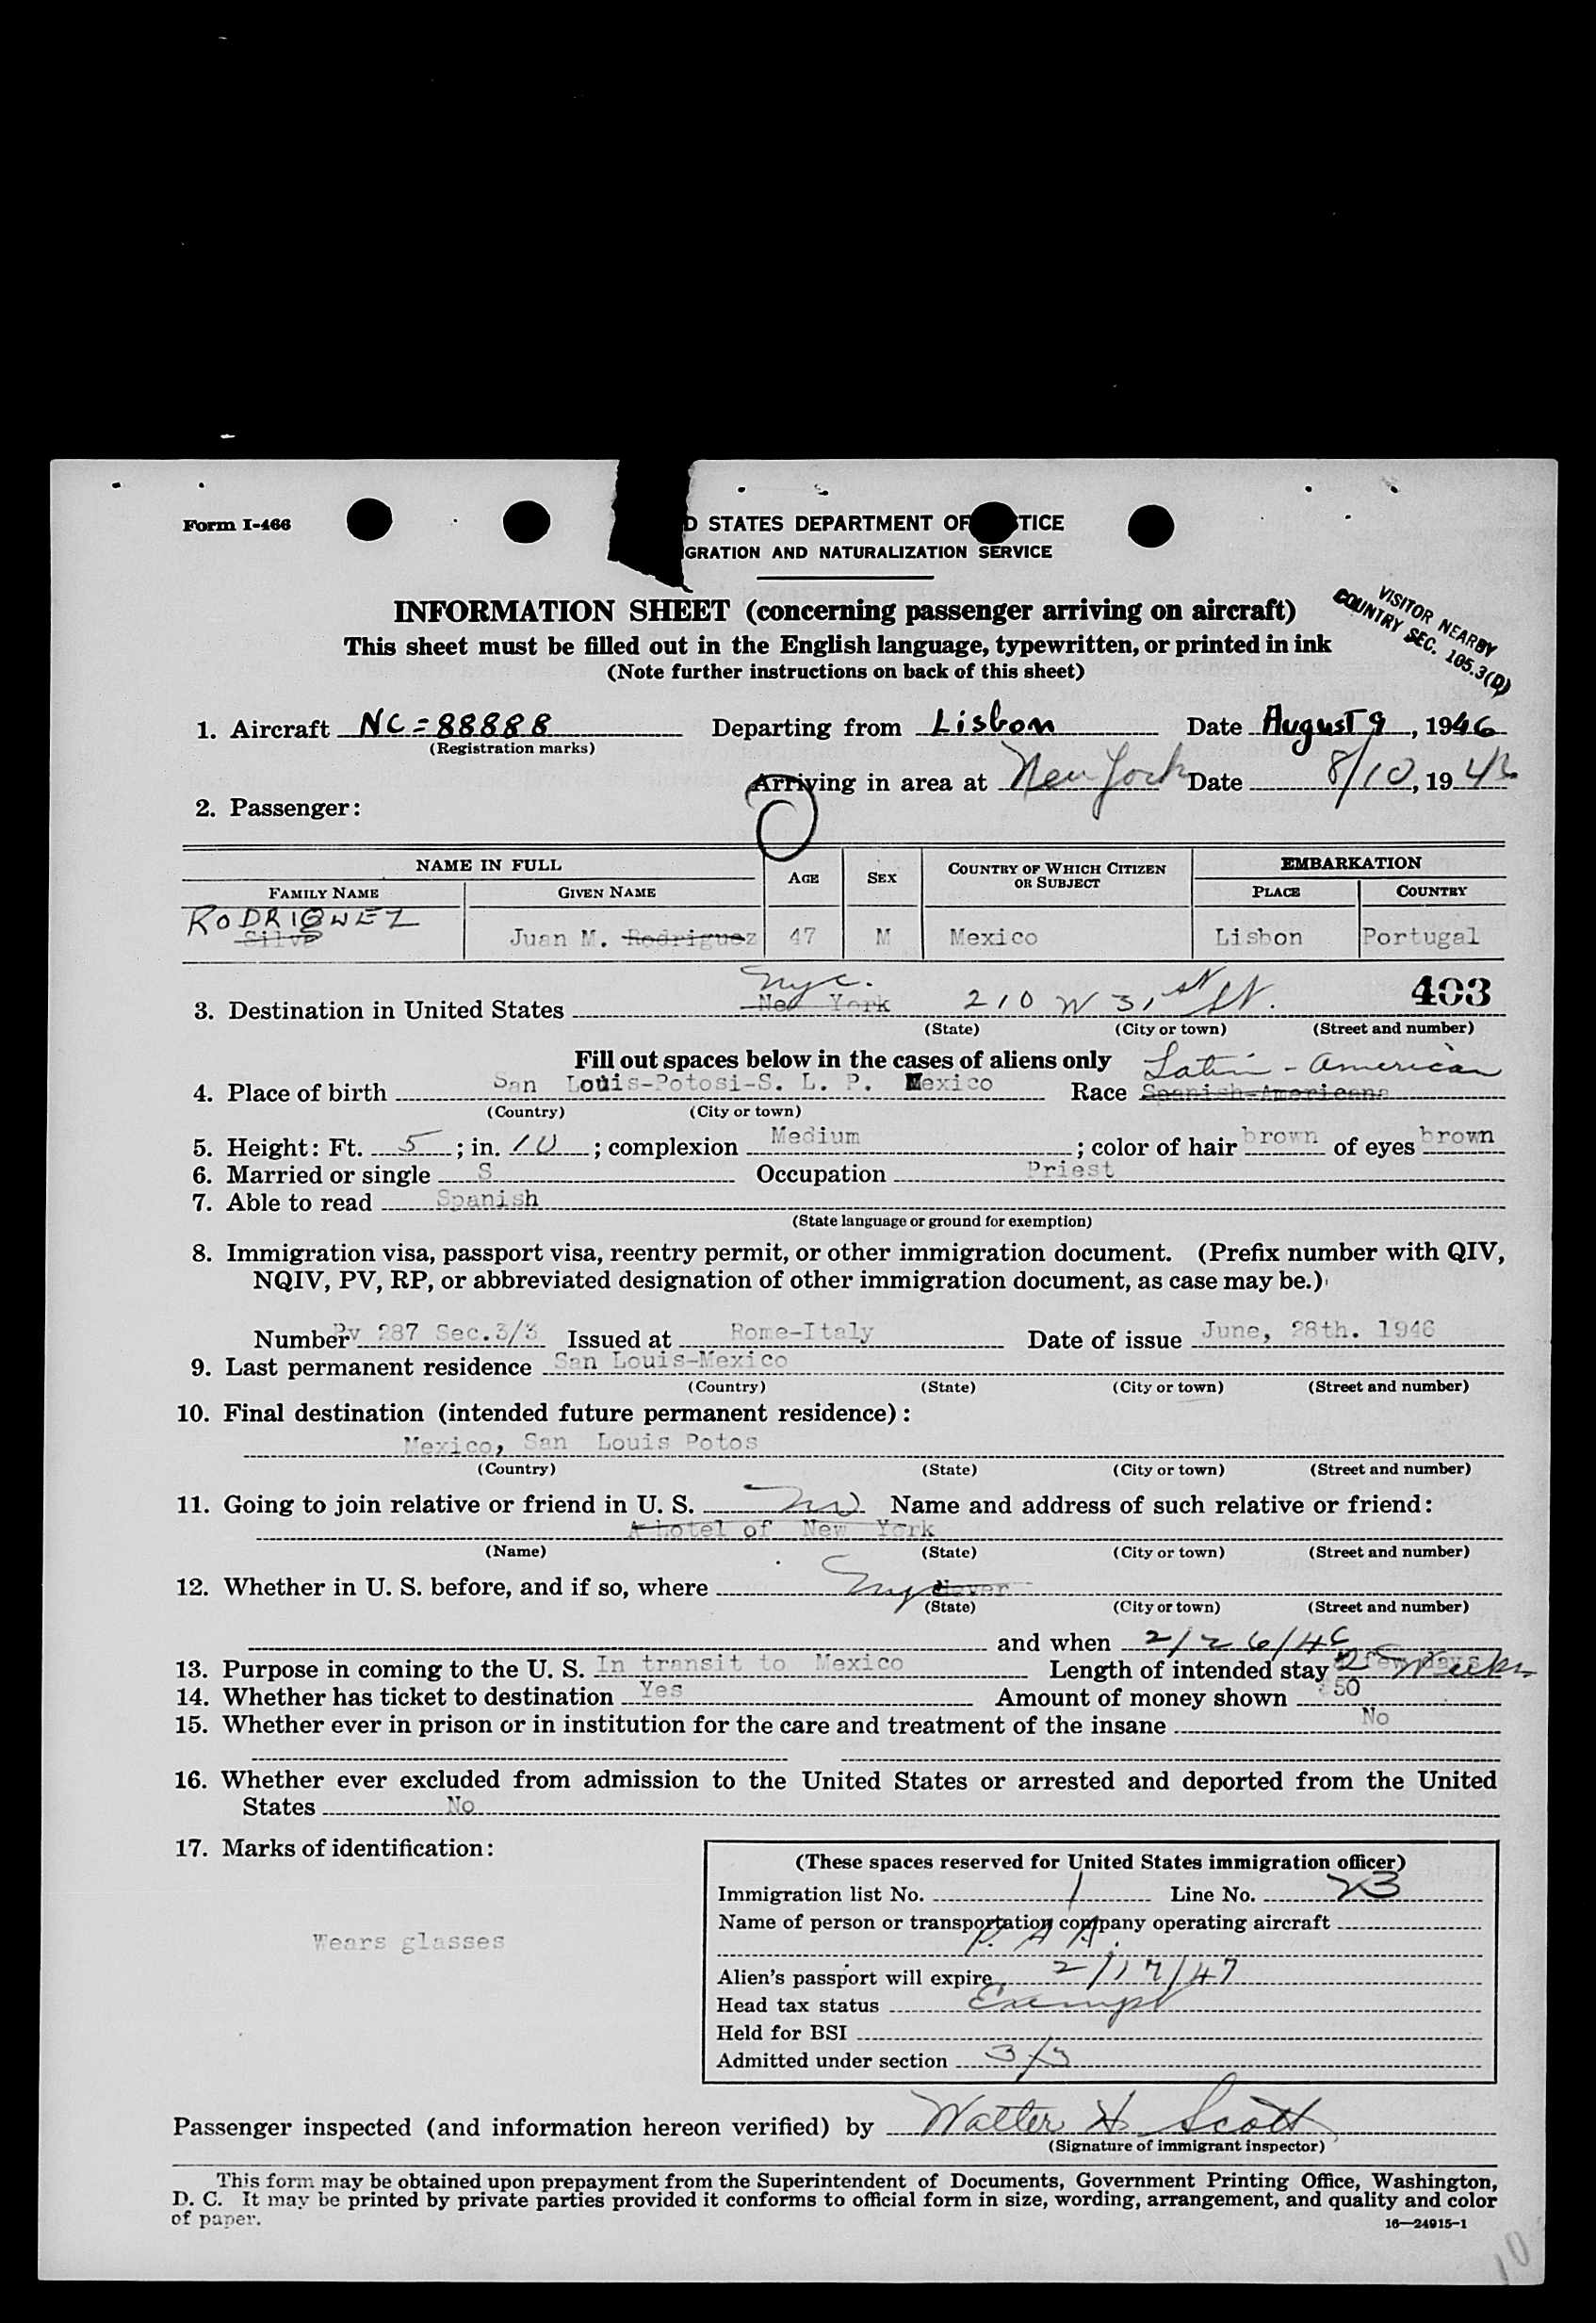 Form I-466
D STATES DEPARTMENT OF TICE
GRATION AND NATURALIZATION SERVICE
INFORMATION SHEET (concerning passenger arriving on aircraft)
VISITOR NEARBY
COUNTRY SEC. 105.3(D)
This sheet must be filled out in the English language, typewritten, or printed in ink
(Note further instructions on back of this sheet)
1. Aircraft NC-88888 Departing from Lisbon Date August 9, 1946
(Registration marks)
Arriving in area at New York Date 8/10, 1946
2. Passenger:
NAME IN FULL AGE SEX COUNTRY OF WHICH CITIZEN OR SUBJECT EMBARKATION
FAMILY NAME GIVEN NAME PLACE COUNTRY
RODRIGUEZ
Silva Juan M. Rodriguez 47 M Mexico Lisbon Portugal
nyc.
3. Destination in United States New York 210 W 31 st St. 403
(State) (City or town) (Street and number)
Fill out spaces below in the cases of aliens only Latin-American
4. Place of birth San Louis-Potosi-S. L. P. Mexico Race Spanish-Americana
(Country) (City or town)
5. Height: Ft. 5; in. 10; complexion Medium; color of hair brown of eyes brown
6. Married or single S Occupation Priest
7. Able to read Spanish
(State language or ground for exemption)
8. Immigration visa, passport visa, reentry permit, or other immigration document. (Prefix number with QIV,
NQIV, PV, RP, or abbreviated designation of other immigration document, as case may be.)
Number Pv 287 Sec.3/3 Issued at Rome-Italy Date of issue June, 28th. 1946
9. Last permanent residence San Louis-Mexico
(Country) (State) (City or town) (Street and number)
10. Final destination (intended future permanent residence):
Mexico, San Louis Potos
(Country) (State) (City or town) (Street and number)
11. Going to join relative or friend in U. S. no Name and address of such relative or friend:
A hotel of New York
(Name) (State) (City or town) (Street and number)
12. Whether in U. S. before, and if so, where nyc Never
(State) (City or town) (Street and number)
and when 2/26/46
13. Purpose in coming to the U. S. In transit to Mexico Length of intended stay 2 few days Weeks
14. Whether has ticket to destination Yes Amount of money shown $50
15. Whether ever in prison or in institution for the care and treatment of the insane No
16. Whether ever excluded from admission to the United States or arrested and deported from the United
States No
17. Marks of identification:
Wears glasses
(These spaces reserved for United States immigration officer)
Immigration list No. 1 Line No. 23
Name of person or transportation company operating aircraft
P. A A.
Alien's passport will expire 2/17/47
Head tax status Exempt
Held for BSI
Admitted under section 3/3
Passenger inspected (and information hereon verified) by Walter H Scott
(Signature of immigrant inspector)
This form may be obtained upon prepayment from the Superintendent of Documents, Government Printing Office, Washington,
D. C. It may be printed by private parties provided it conforms to official form in size, wording, arrangement, and quality and color
of paper.
16—24915-1
10